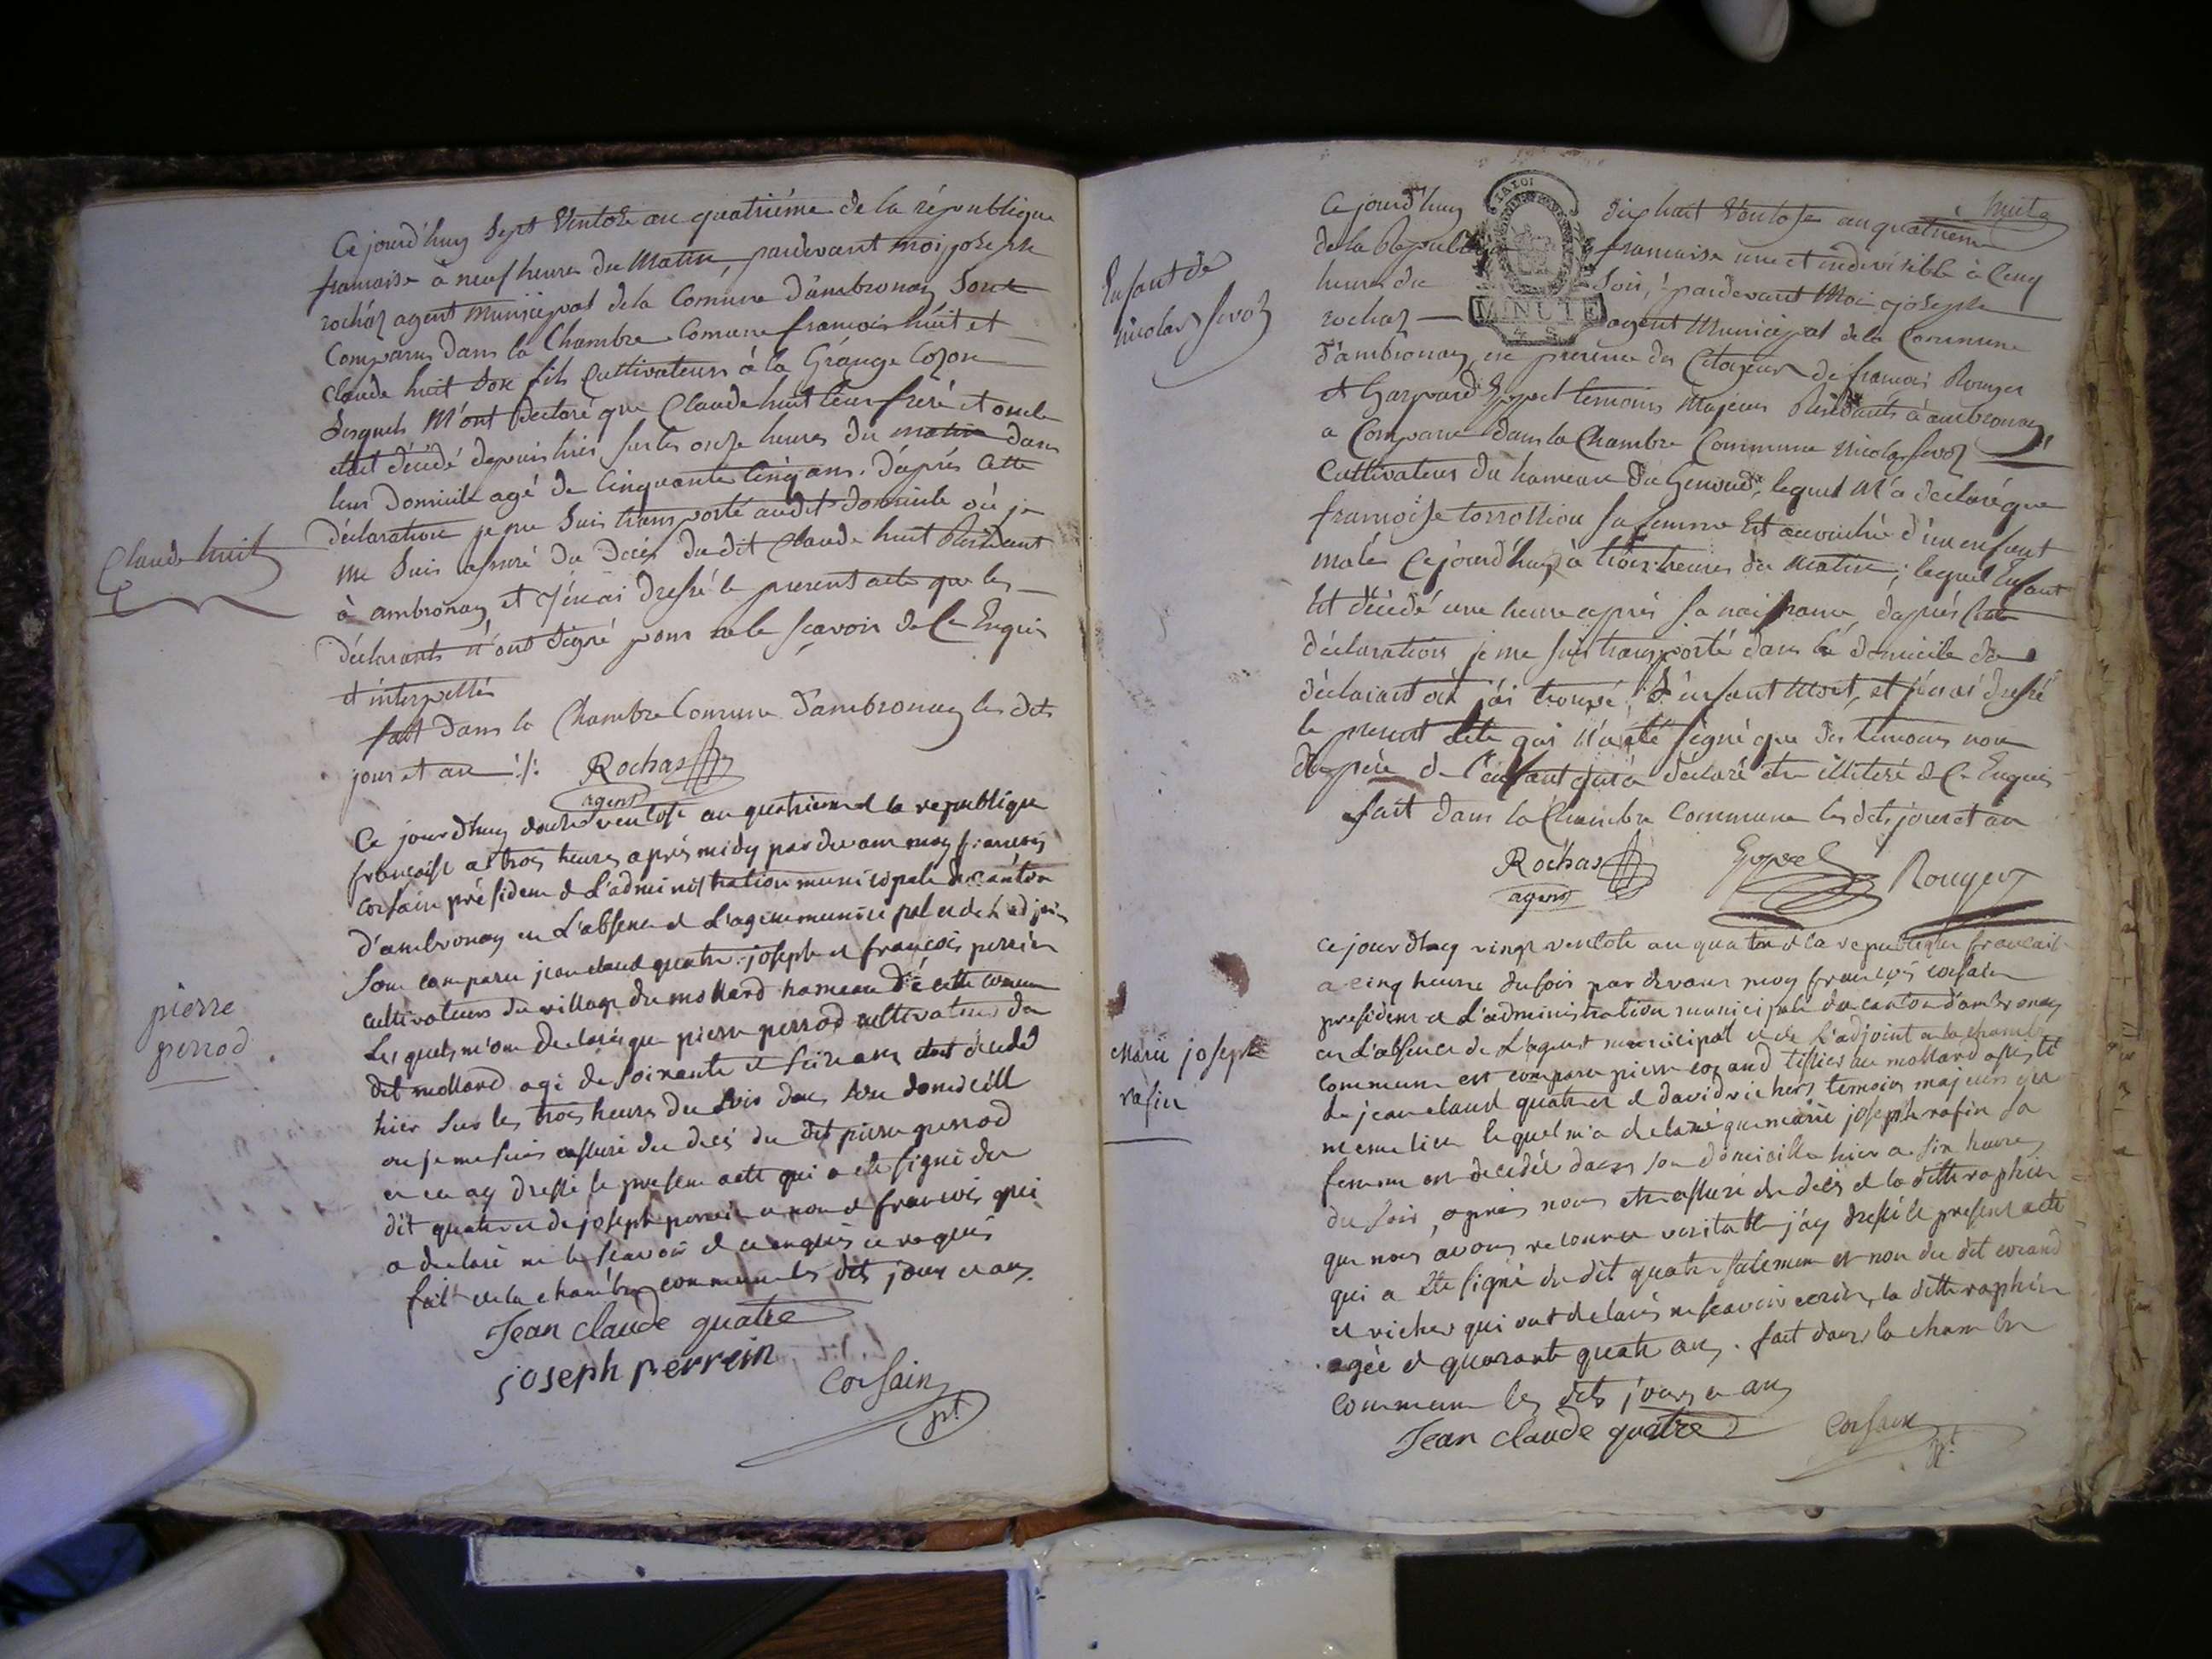 Ce jourd'huy sept Ventose an quatriéme de la république
francaise à neuf heures du Matin, pardevant moi joseph
rochas agent Municipal de la Comune d'ambronay Sont
Comparus dans la Chambre Comune francois huit et
Claude huit son fils Cultivateurs à la Grange Cozon
Lesquels M'ont declaré que Claude huit leur frére et oncle
etait décédé depuis hier sur les onze heures du matin dans
leur Domicile agé de Cinquante Cinq ans. D'aprés Cette
déclaration je me suis transporté audit domicile où je
me suis assuré du Décès du dit Claude huit Residant
à ambronay et j'en ai Dressé le present acte que les
déclarants n'ont signé pour ne le sçavoir de Ce Enquis
et interpellés
fait dans la Chambre Comune d'ambronay les dits
jour et an
Rochas
agent
Claude huit
Ce jourdhuy douze ventose an quatrieme de la republique
francaise a trois heures aprés midy par devant moy francois
corsain président de l'administration municipale du canton
d'ambronay en l'absence de l'agent municipal et de l'adjoint
sont comparu jean claude quatre joseph et françois perrin
cultivateurs du village du mollard hameau de cette commune
Lesquels m'ont declaré que pierre perrod cultivateur du
dit mollard agé de soixante et seize ans etoit décédé
hier sur les trois heures du soir dans son domicille
ou je me suis assuré du decés du dit pierre perrod
et en ay dressé le present acte qui a eté signé du
dit quatre et de joseph perrin et non de francois qui
a declaré ne le scavoir de ce enquis et requis
fait en la chambre commune les dits jour et an
pierre
perrod
Jean claude quatre
joseph perrein
Corsain
pt
huit
Ce jourd'huy dix huit Ventose an quatrieme
de la Republique francaise une et indivisible à Cinq
heures du Soir, pardevant Moi joseph
rochas agent Municipal de la Commune
d'ambronay, en presence des Citoyens francois Rouger
et Gaspard Goppet temoins Majeurs Residants à ambronay
a Comparu dans la Chambre Commune Nicolas sevoz
Cultivateur du hameau du Genoud, lequel M'a déclaré que
francoise torrollion sa femme Est accouchée d'un enfant
male Cejourd'huy à trois heures du Matin; lequel Enfant
Est décédé une heure aprés sa naissance, d'aprés Cette
déclaration je me suis transporté dans le domicile du
déclarant où j'ai trouvé l'enfant Mort, et j'en ai dressé
le present acte qui n'a été signé que des temoins non
du pére de l'enfant qui a declaré etre illiteré de Ce Enquis
fait dans la Chambre Commune les dits jour et an
LA LOI
MINUTE
Enfant de
nicolas sevoz
Rochas
agent
Goppet
Rouger
ce jourdhuy vingt ventose an quatre de la republique francaise
a cinq heures du soir par devant moy francois corsain
president de l'administration municipale du canton d'ambronay
en l'absence de l'agent municipal et de l'adjoint a la chambre
commune est comparu pierre cocand tissier au mollard assisté
de jean claud quatre et david richer, temoins majeurs du
meme lieu lequel m'a declaré que marie joseph rafin sa
femme est decedée dans son domicille hier a six heures
du soir, aprés nous etre assuré du decés de la ditte raphin
que nous avons reconnu veritable j'ay dressé le present acte
qui a été signé du dit quatre seulement et non du dit cocand
et richer qui ont declarés ne scavoir ecrire, la ditte raphin
agée de quarante quatre ans. fait dans la chambre
commune les dits jours et an
Marie joseph
rafin
Jean claude quatre
Corsain
pt